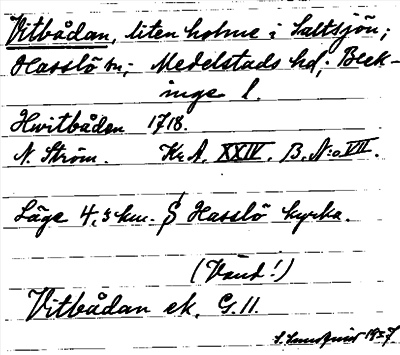 Vitbådan, liten holme i Saltsjön;
Hasslö sn; Medelstads hd; Blek-
inge l.
Hwitbåden 1718.
N. Ström. Kr. A. XXIV. B. N:o VII.
Läge 4,3 km. S Hasslö kyrka.
(Vänd!)
Vitbådan ek. G. 11.